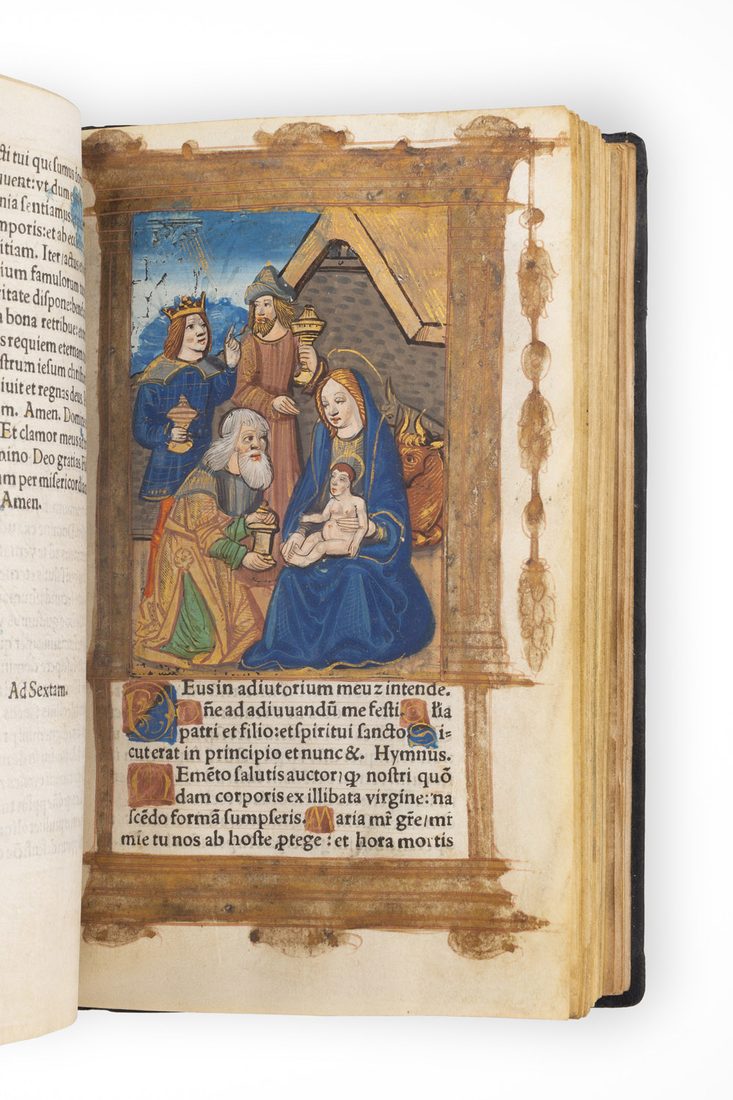 tui quesumus
uent: vt dum
nia sentiamus
mporis: et ab
itiam. Iter
ium famulorum
itate dispone:
a bona retribue:
s requiem eternam
strum iesum
iuit et regnas deus
m. Amen.
Et clamor meus
mino Deo gratias
am per misericord
Amen.
Ad Sextam.
Deus in adiutorium meuz intende.
Dñe ad adiuuandū me festi. Gl'ia
patri et filio: et spiritui sancto. Si-
cut erat in principio et nunc &. Hymnus.
MEmēto salutis auctor, qꝫ nostri quō
dam corporis ex illibata virgine: na
scēdo formā sumpseris. Maria mr̄ gr̄e/ mr̄
mie tu nos ab hoste ꝓtege: et hora mortis